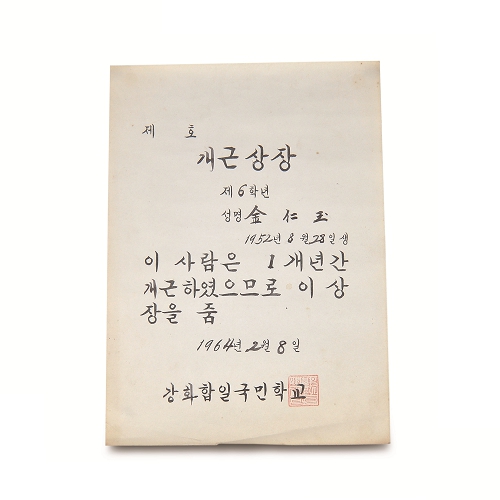 제 호
개근상장
제6학년
성명 金仁玉
1952년 8월 28일생
이 사람은 1개년간
개근하였으므로 이 상
장을 줌
1964년 2월 8일
강화합일국민학교